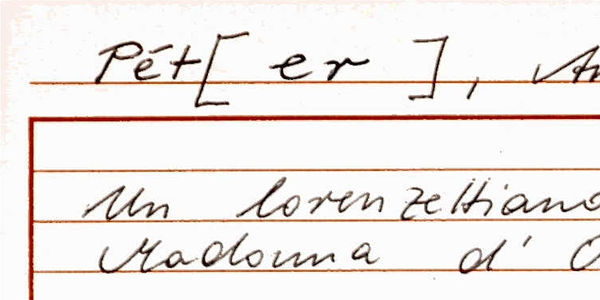 Pét[er],
Un lorenzettiano
Madonna d'